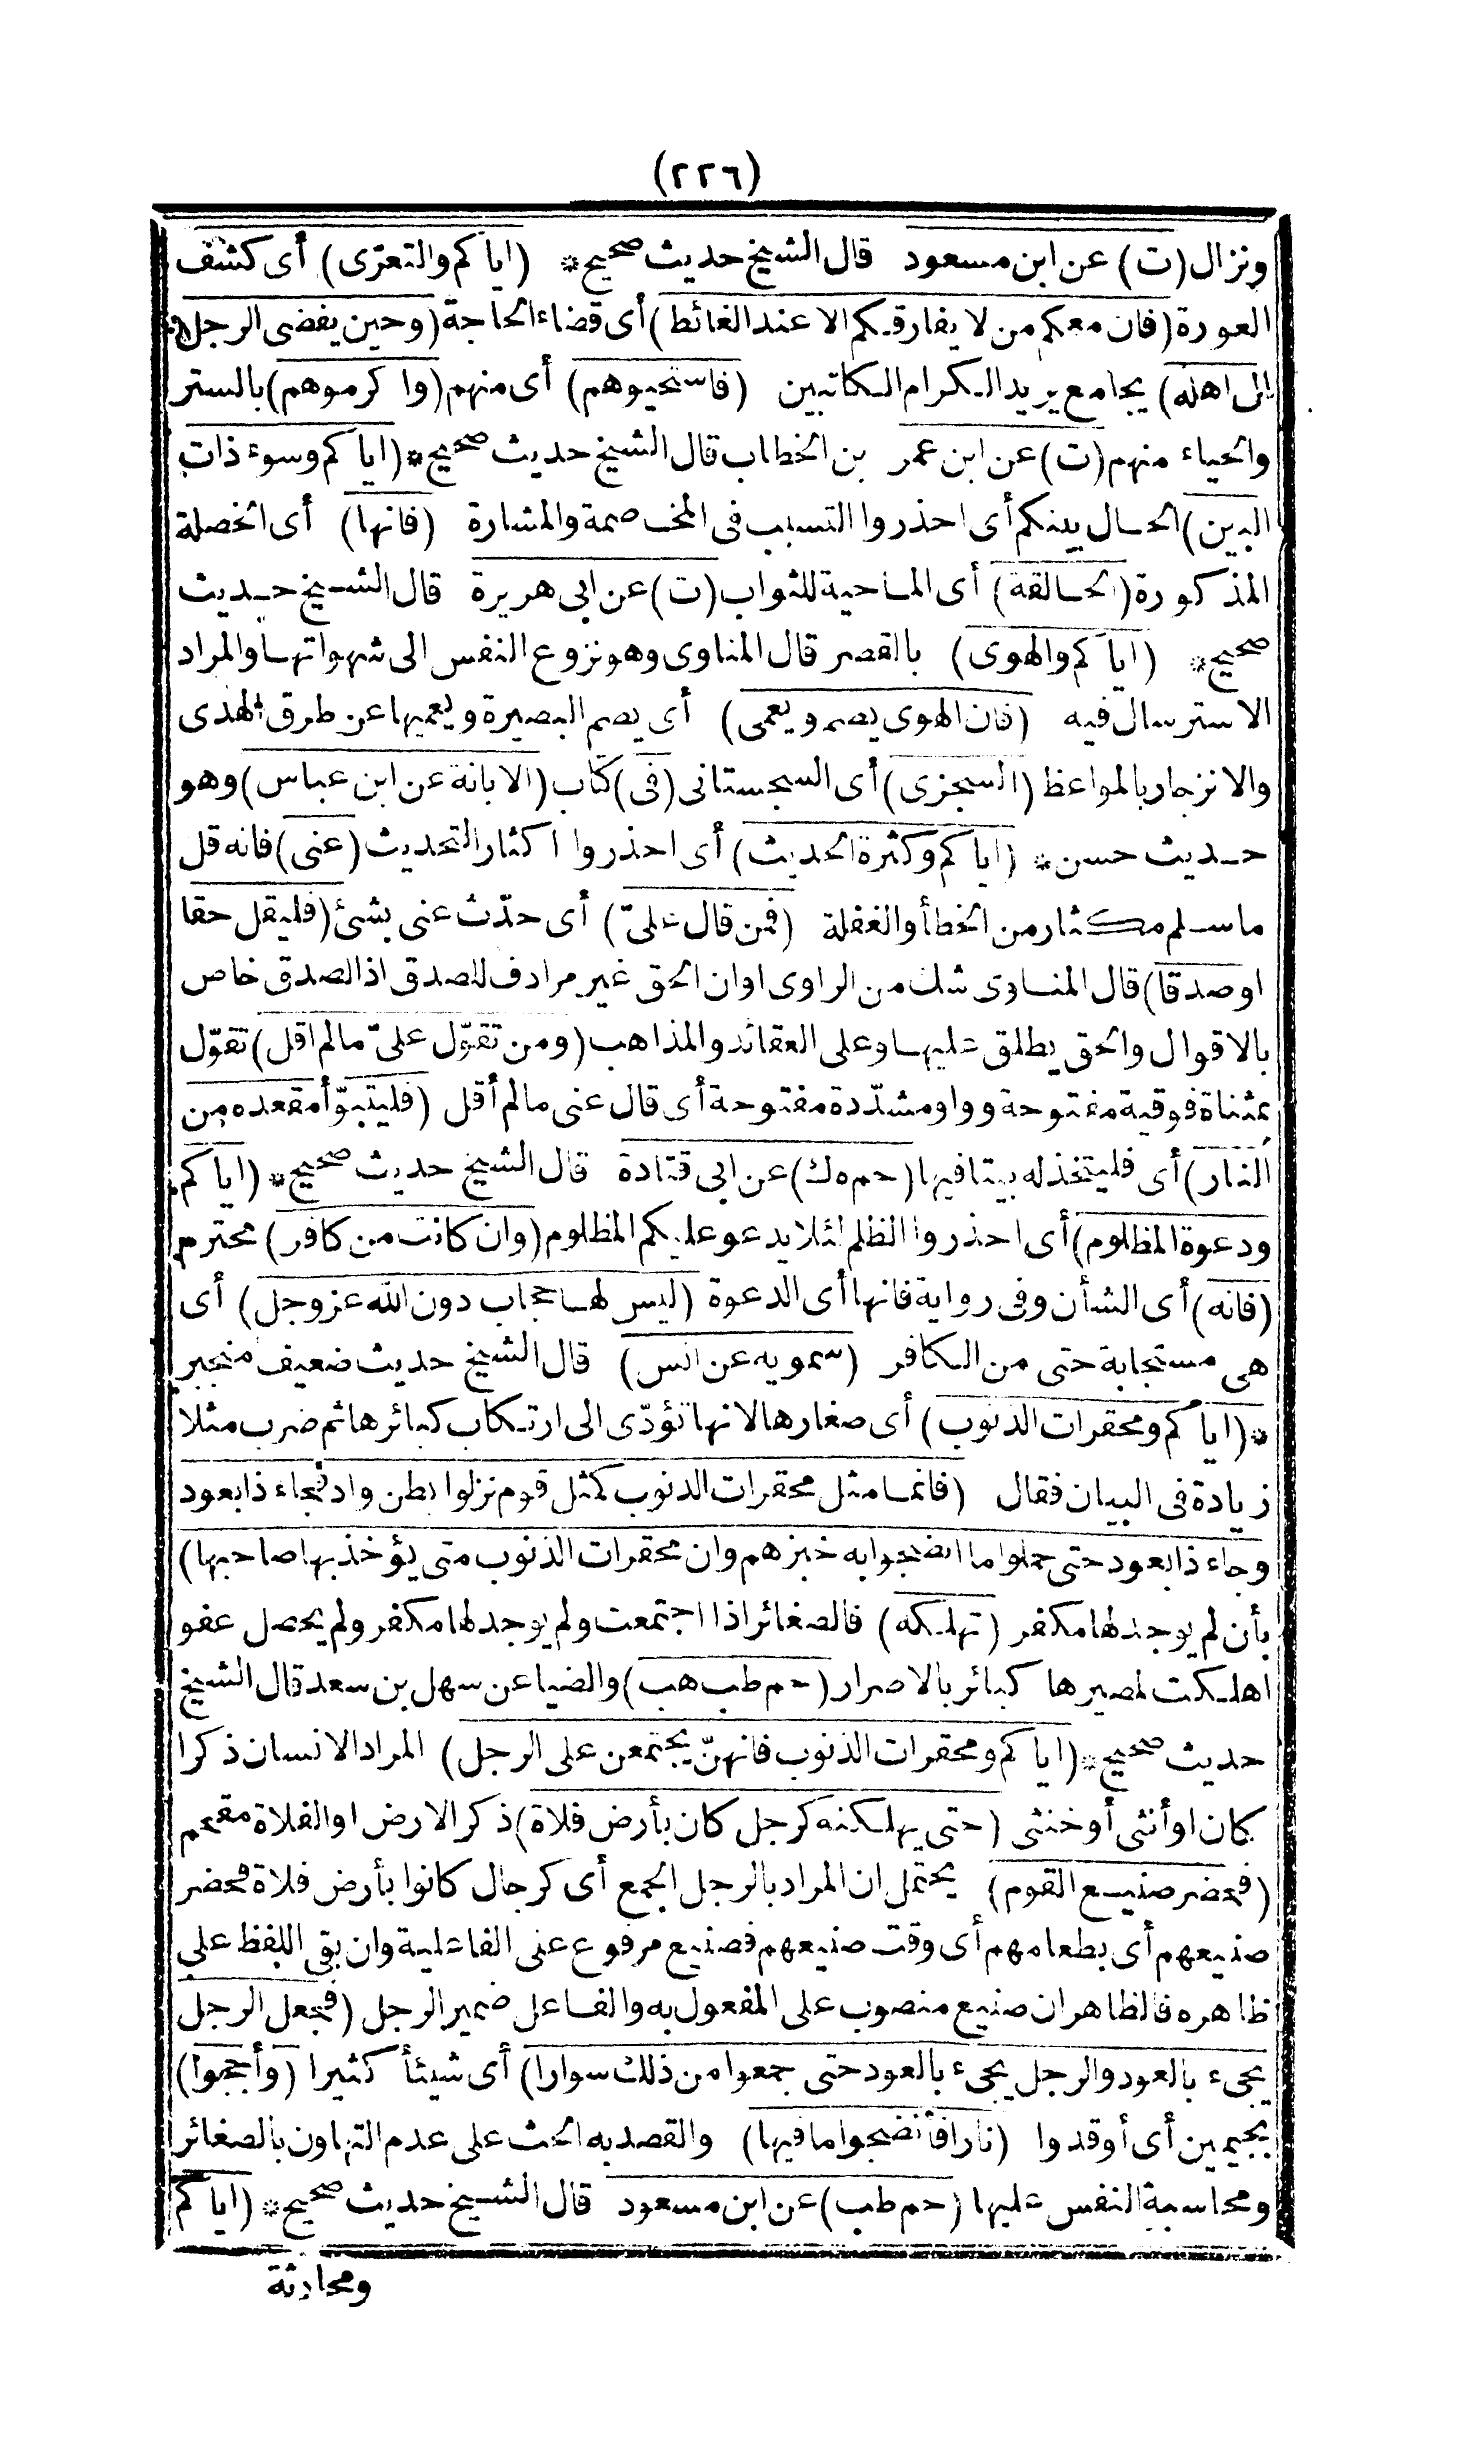 (٢٢٦)
ونزال (ت) عن ابن مسعود قال الشيخ حديث صحيح * (اياكم والتعرّى) أى كشف
العورة (فان معكم من لا يفارقكم الا عند الغائط) أى قضاء الحاجة (وحين يفضى الرجل
الى اهله) يجامع يريد الكرام الكاتبين (فاستحيوهم) أى منهم (واكرموهم) بالستر
والحياء منهم (ت) عن ابن عمر بن الخطاب قال الشيخ حديث صحيح * (اياكم وسوء ذات
البين) الحال بينكم أى احذروا التسبب فى المخاصمة والمشارة (فانها) أى الخصلة
المذكورة (الحالقة) أى الماحية للثواب (ت) عن ابى هريرة قال الشيخ حديث
صحيح * (اياكم والهوى) بالقصر قال المناوى وهو نزوع النفس الى شهواتها والمراد
الاسترسال فيه (فان الهوى يصم ويعمى) أى يصم البصيرة ويعميها عن طرق الهدى
والانزجار بالمواعظ (السجزى) أى السجستانى (فى) كتاب (الابانة عن ابن عباس) وهو
حديث حسن * (اياكم وكثرة الحديث) أى احذروا اكثار التحديث (عنى) فانه قل
ما سلم مكثار من الخطأ والغفلة (فمن قال علىّ) أى حدّث عنى بشئ (فليقل حقا
او صدقا) قال المناوى شك من الراوى او ان الحق غير مرادف للصدق اذ الصدق خاص
بالاقوال والحق يطلق عليها وعلى العقائد والمذاهب (ومن تقوّل علىّ مالم اقل) تقوّل
بمثناة فوقية مفتوحة وواو مشدّدة مفتوحة أى قال عنى مالم أقل (فليتبوّأ مقعده من
النار) أى فليتخذ له بيتا فيها (حم ه ك) عن ابى قتادة قال الشيخ حديث صحيح * (اياكم
ودعوة المظلوم) أى احذروا الظلم لئلا يدعو عليكم المظلوم (وان كانت من كافر) محترم
(فانه) أى الشأن وفى رواية فانها أى الدعوة (ليس لها حجاب دون الله عز وجل) أى
هى مستجابة حتى من الكافر (سمويه عن انس) قال الشيخ حديث ضعيف منجبر
* (اياكم ومحقرات الذنوب) أى صغارها لانها تؤدّى الى ارتكاب كبائرها ثم ضرب مثلا
زيادة فى البيان فقال (فانما مثل محقرات الذنوب كمثل قوم نزلوا بطن واد فجاء ذا بعود
وجاء ذا بعود حتى حملوا ما انضجوا به خبزهم وان محقرات الذنوب متى يؤخذ بها صاحبها)
بأن لم يوجد لها مكفر (تهلكه) فالصغائر اذا اجتمعت ولم يوجد لها مكفر ولم يحصل عفو
اهلكت لمصيرها كبائر بالاصرار (حم طب هب) والضيا عن سهل بن سعد قال الشيخ
حديث صحيح * (اياكم ومحقرات الذنوب فانهنّ يجتمعن على الرجل) المراد الانسان ذكرا
كان او أنثى أو خنثى (حتى يهلكنه كرجل كان بأرض فلاة) ذكر الارض او الفلاة مقحم
(فحضر صنيع القوم) يحتمل ان المراد بالرجل الجمع أى كرجال كانوا بأرض فلاة فحضر
صنيعهم أى بطعامهم أى وقت صنيعهم فصنيع مرفوع عنى الفاعلية وان بقى اللفظ على
ظاهره فالظاهر ان صنيع منصوب على المفعول به والفاعل ضمير الرجل (فجعل الرجل
يجىء بالعود والرجل يجىء بالعود حتى جمعوا من ذلك سوارا) أى شيئأ كثيرا (وأججوا)
بجيمين أى أوقدوا (نارا فأنضجوا ما فيها) والقصد به الحث على عدم التهاون بالصغائر
ومحاسبة النفس عليها (حم طب) عن ابن مسعود قال الشيخ حديث صحيح * (اياكم
ومحادثة